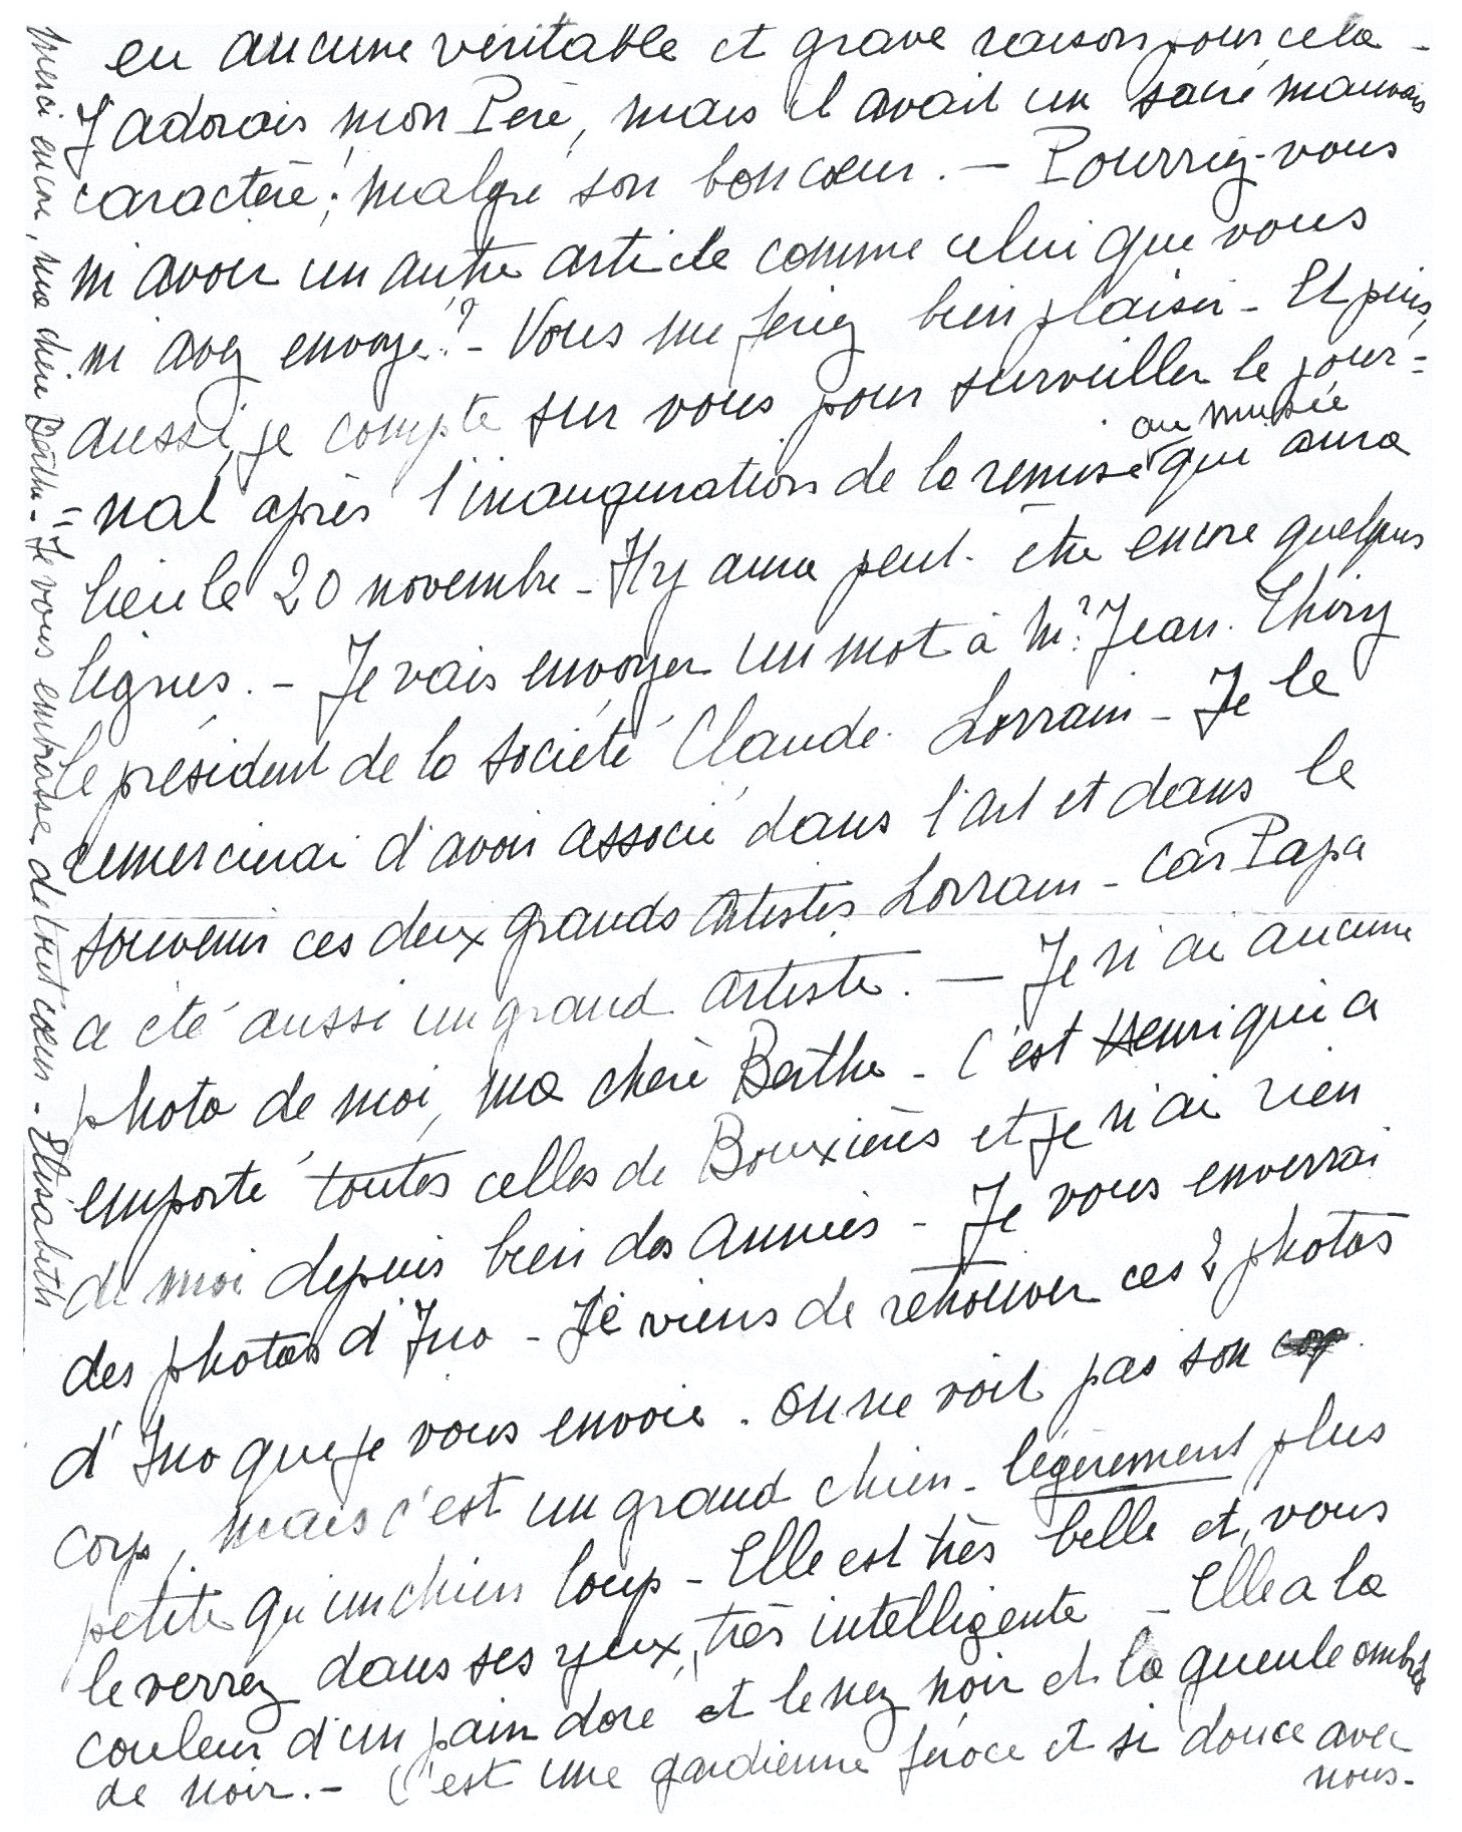 eu aucune véritable et grave raison pour cela -
J'adorais mon Père, mais il avait un sacré mauvais
caractère ; malgré son bon cœur. - Pourriez-vous
m'avoir un autre article comme celui que vous
m'avez envoyé ? - Vous me feriez bien plaisir - Et puis,
aussi, je compte sur vous pour surveiller le jour=
au musée
=nal après l'inauguration de la remise qui aura
lieu le 20 novembre - Il y aura peut-être encore quelques
lignes. - Je vais envoyer un mot à Mr Jean-Thiry
le président de la société Claude-Lorrain - Je le
remercierai d'avoir associé dans l'art et dans le
souvenir ces deux grands Artistes Lorrain - Car Papa
a été aussi un grand artiste. - Je n'ai aucune
photo de moi, ma chère Berthe - C'est Henri qui a
emporté toutes celles de Bouxières et je n'ai rien
de moi depuis bien des années - Je vous enverrai
des photos d'Ino - Je viens de retrouver ces 2 photos
d'Ino que je vous envoie. On ne voit pas son
corps, mais c'est un grand chien - légèrement plus
petite qu'un chien loup - Elle est très belle et, vous
le verrez dans ses yeux, très intelligente - Elle a la
couleur d'un pain doré et le nez noir et la gueule ombrée
de noir. - C'est une gardienne féroce et si douce avec
nous -
Merci encore, ma chère Berthe - Je vous embrasse de tout cœur - Elisabeth